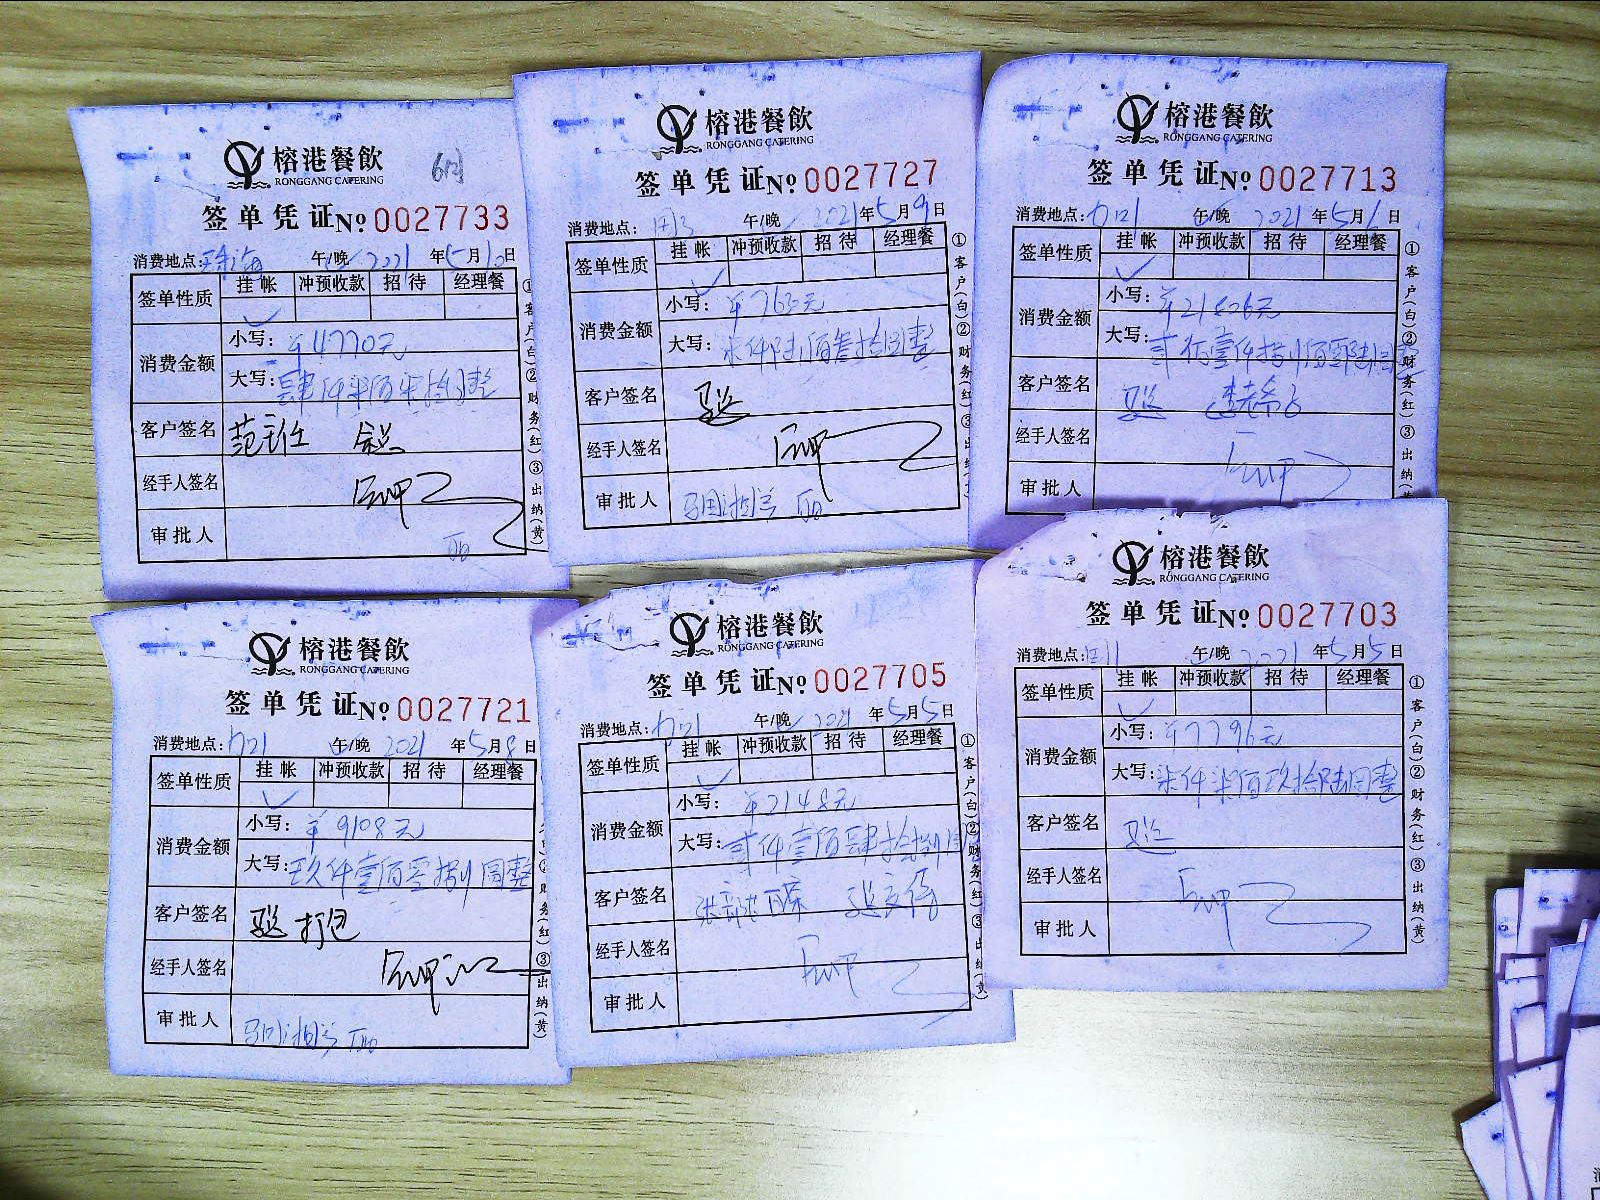 榕港餐飲
RONGGANG CATERING
签单凭证 № 0027733
消费地点: 珠海 午/晚 2021年5月10日
签单性质 挂帐 冲预收款 招待 经理餐
消费金额 小写: ¥4770元
大写: 肆仟柒佰柒拾圆整
客户签名 范主任
经手人签名
审批人
①客户(白)②财务(红)③出纳(黄)
榕港餐飲
RONGGANG CATERING
签单凭证 № 0027727
消费地点: 午/晚 2021年5月9日
签单性质 挂帐 冲预收款 招待 经理餐
消费金额 小写:
大写: 柒仟陆佰叁拾圆整
客户签名
经手人签名
审批人
①客户(白)②财务(红)③出纳
榕港餐飲
RONGGANG CATERING
签单凭证 № 0027713
消费地点: 午/晚 2021年5月6日
签单性质 挂帐 冲预收款 招待 经理餐
消费金额 小写: ¥21806元
大写:
客户签名
经手人签名
审批人
①客户(白)②财务(红)③出纳(黄
榕港餐飲
RONGGANG CATERING
签单凭证 № 0027721
消费地点: 午/晚 2021年5月8日
签单性质 挂帐 冲预收款 招待 经理餐
消费金额 小写: ¥9108元
大写: 玖仟壹佰零捌圆整
客户签名 打包
经手人签名
审批人
财务(红)③出纳(黄)
榕港餐飲
RONGGANG CATERING
签单凭证 № 0027705
消费地点: 午/晚 2021年5月5日
签单性质 挂帐 冲预收款 招待 经理餐
消费金额 小写: ¥2148元
大写: 贰仟壹佰肆拾捌圆
客户签名
经手人签名
审批人
①客户(白)②财务(红)③出纳(黄
榕港餐飲
RONGGANG CATERING
签单凭证 № 0027703
消费地点: 午/晚 2021年5月5日
签单性质 挂帐 冲预收款 招待 经理餐
消费金额 小写: ¥7796元
大写: 柒仟柒佰玖拾陆圆整
客户签名
经手人签名
审批人
①客户(白)②财务(红)③出纳(黄)